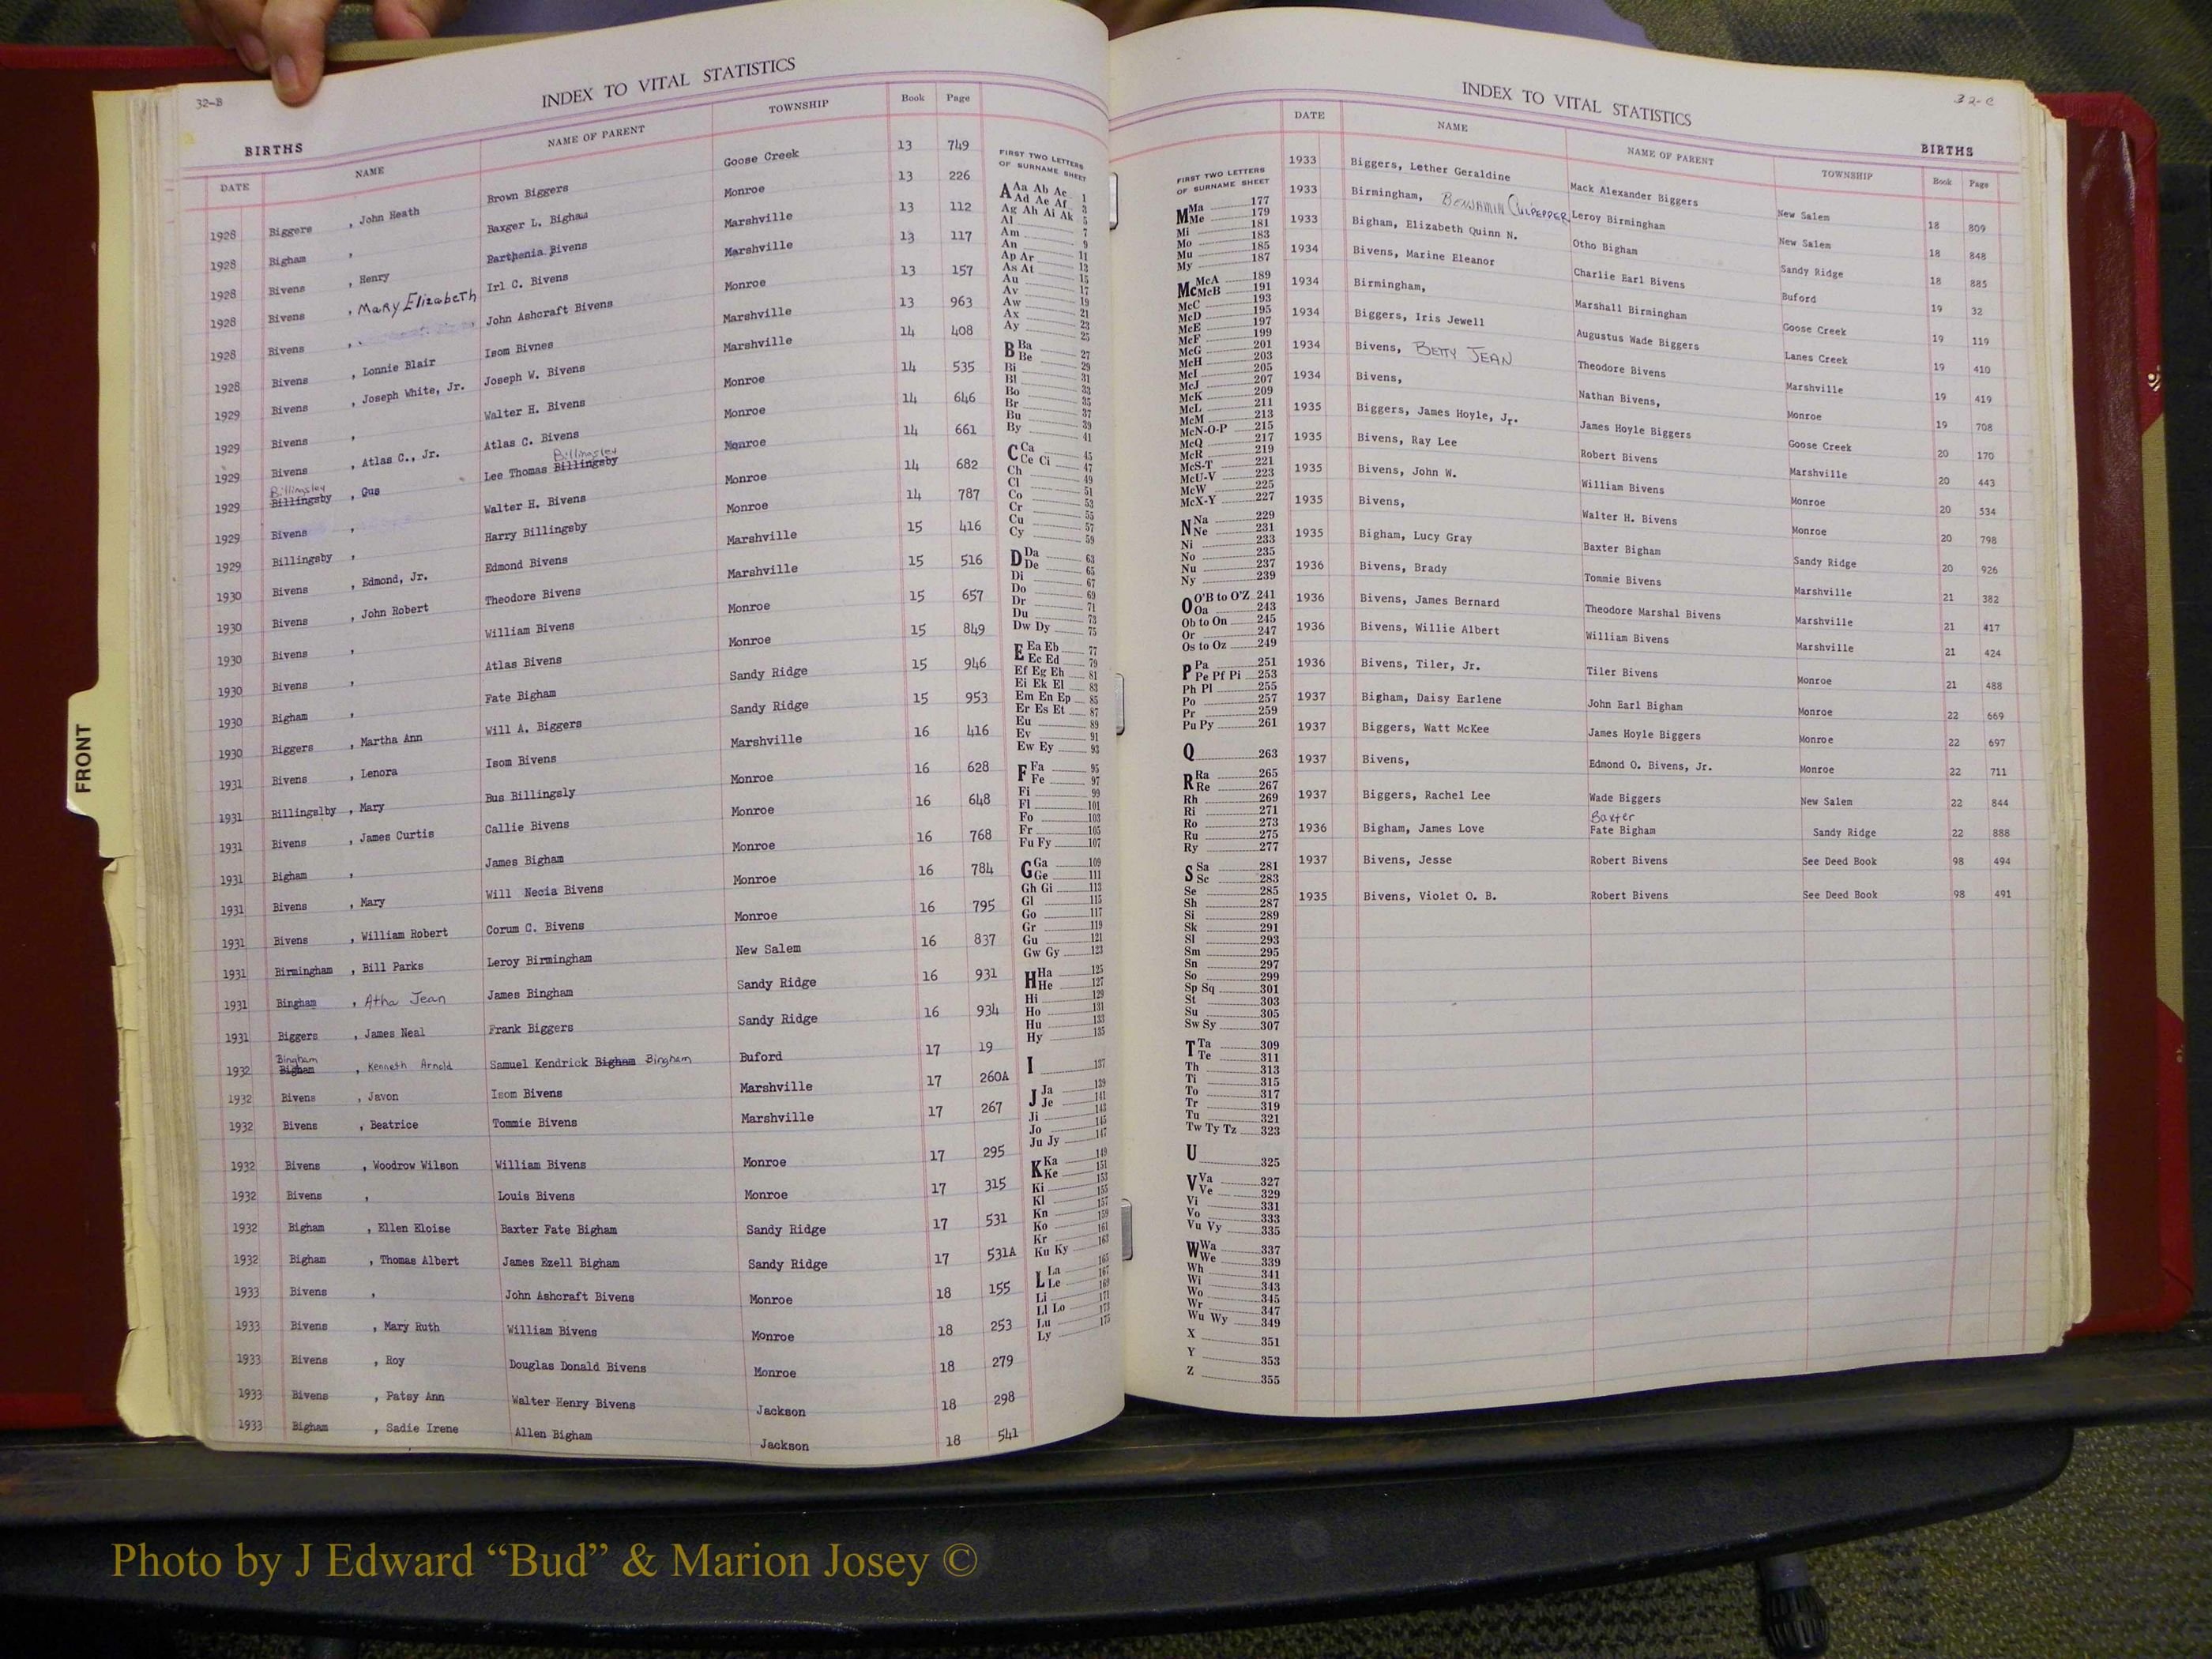 32-B
INDEX TO VITAL STATISTICS
BIRTHS
DATE NAME NAME OF PARENT TOWNSHIP Book Page
1928 Biggers , John Heath Brown Biggers Goose Creek 13 749
1928 Bigham , Baxger L. Bigham Monroe 13 226
1928 Bivens , Henry Parthenia Bivens Marshville 13 112
1928 Bivens , Mary Elizabeth Irl C. Bivens Marshville 13 117
1928 Bivens , John Ashcraft Bivens Monroe 13 157
1928 Bivens , Lonnie Blair Isom Bivnes Marshville 13 963
1929 Bivens , Joseph White, Jr. Joseph W. Bivens Marshville 14 408
1929 Bivens , Walter H. Bivens Monroe 14 535
1929 Bivens , Atlas C., Jr. Atlas C. Bivens Monroe 14 646
Billingsley Billingsley
1929 Billingsby , Gus Lee Thomas Billingsby Monroe 14 661
1929 Bivens , Walter H. Bivens Monroe 14 682
1929 Billingsby , Harry Billingsby Monroe 14 787
1930 Bivens , Edmond, Jr. Edmond Bivens Marshville 15 416
1930 Bivens , John Robert Theodore Bivens Marshville 15 516
1930 Bivens , William Bivens Monroe 15 657
1930 Bivens , Atlas Bivens Monroe 15 849
1930 Bigham , Fate Bigham Sandy Ridge 15 946
1930 Biggers , Martha Ann Will A. Biggers Sandy Ridge 15 953
1931 Bivens , Lenora Isom Bivens Marshville 16 416
1931 Billingslby , Mary Bus Billingsly Monroe 16 628
1931 Bivens , James Curtis Callie Bivens Monroe 16 648
1931 Bigham , James Bigham Monroe 16 768
1931 Bivens , Mary Will Necia Bivens Monroe 16 784
1931 Bivens , William Robert Corum C. Bivens Monroe 16 795
1931 Birmingham , Bill Parks Leroy Birmingham New Salem 16 837
1931 Bingham , Atha Jean James Bingham Sandy Ridge 16 931
1931 Biggers , James Neal Frank Biggers Sandy Ridge 16 934
Bingham
1932 Bigham , Kenneth Arnold Samuel Kendrick Bigham Bingham Buford 17 19
1932 Bivens , Javon Isom Bivens Marshville 17 260A
1932 Bivens , Beatrice Tommie Bivens Marshville 17 267
1932 Bivens , Woodrow Wilson William Bivens Monroe 17 295
1932 Bivens , Louis Bivens Monroe 17 315
1932 Bigham , Ellen Eloise Baxter Fate Bigham Sandy Ridge 17 531
1932 Bigham , Thomas Albert James Ezell Bigham Sandy Ridge 17 531A
1933 Bivens , John Ashcraft Bivens Monroe 18 155
1933 Bivens , Mary Ruth William Bivens Monroe 18 253
1933 Bivens , Roy Douglas Donald Bivens Monroe 18 279
1933 Bivens , Patsy Ann Walter Henry Bivens Jackson 18 298
1933 Bigham , Sadie Irene Allen Bigham Jackson 18 541
FIRST TWO LETTERS
OF SURNAME SHEET
A Aa Ab Ac 1
Ad Ae Af 3
Ag Ah Ai Ak 5
Al 7
Am 9
An 11
Ap Ar 13
As At 15
Au 17
Av 19
Aw 21
Ax 23
Ay 25
B Ba 27
Be 29
Bi 31
Bl 33
Bo 35
Br 37
Bu 39
By 41
C Ca 45
Ce Ci 47
Ch 49
Cl 51
Co 53
Cr 55
Cu 57
Cy 59
D Da 63
De 65
Di 67
Do 69
Dr 71
Du 73
Dw Dy 75
E Ea Eb 77
Ec Ed 79
Ef Eg Eh 81
Ei Ek El 83
Em En Ep 85
Er Es Et 87
Eu 89
Ev 91
Ew Ey 93
F Fa 95
Fe 97
Fi 99
Fl 101
Fo 103
Fr 105
Fu Fy 107
G Ga 109
Ge 111
Gh Gi 113
Gl 115
Go 117
Gr 119
Gu 121
Gw Gy 123
H Ha 125
He 127
Hi 129
Ho 131
Hu 133
Hy 135
I 137
J Ja 139
Je 141
Ji 143
Jo 145
Ju Jy 147
K Ka 149
Ke 151
Ki 153
Kl 155
Kn 157
Ko 159
Kr 161
Ku Ky 163
L La 165
Le 167
Li 169
Ll Lo 171
Lu 173
Ly 175
INDEX TO VITAL STATISTICS
32-C
BIRTHS
FIRST TWO LETTERS
OF SURNAME SHEET
M Ma 177
Me 179
Mi 181
Mo 183
Mu 185
My 187
Mc McA 189
McB 191
McC 193
McD 195
McE 197
McF 199
McG 201
McH 203
McI 205
McJ 207
McK 209
McL 211
McM 213
McN-O-P 215
McQ 217
McR 219
McS-T 221
McU-V 223
McW 225
McX-Y 227
N Na 229
Ne 231
Ni 233
No 235
Nu 237
Ny 239
O O'B to O'Z 241
Oa 243
Ob to On 245
Or 247
Os to Oz 249
P Pa 251
Pe Pf Pi 253
Ph Pl 255
Po 257
Pr 259
Pu Py 261
Q 263
R Ra 265
Re 267
Rh 269
Ri 271
Ro 273
Ru 275
Ry 277
S Sa 281
Sc 283
Se 285
Sh 287
Si 289
Sk 291
Sl 293
Sm 295
Sn 297
So 299
Sp Sq 301
St 303
Su 305
Sw Sy 307
T Ta 309
Te 311
Th 313
Ti 315
To 317
Tr 319
Tu 321
Tw Ty Tz 323
U 325
V Va 327
Ve 329
Vi 331
Vo 333
Vu Vy 335
W Wa 337
We 339
Wh 341
Wi 343
Wo 345
Wr 347
Wu Wy 349
X 351
Y 353
Z 355
DATE NAME NAME OF PARENT TOWNSHIP Book Page
1933 Biggers, Lether Geraldine Mack Alexander Biggers New Salem 18 809
1933 Birmingham, BENJAMIN CULPEPPER Leroy Birmingham New Salem 18 848
1933 Bigham, Elizabeth Quinn N. Otho Bigham Sandy Ridge 18 885
1934 Bivens, Marine Eleanor Charlie Earl Bivens Buford 19 32
1934 Birmingham, Marshall Birmingham Goose Creek 19 119
1934 Biggers, Iris Jewell Augustus Wade Biggers Lanes Creek 19 410
1934 Bivens, BETTY JEAN Theodore Bivens Marshville 19 419
1934 Bivens, Nathan Bivens, Monroe 19 708
1935 Biggers, James Hoyle, Jr. James Hoyle Biggers Goose Creek 20 170
1935 Bivens, Ray Lee Robert Bivens Marshville 20 443
1935 Bivens, John W. William Bivens Monroe 20 534
1935 Bivens, Walter H. Bivens Monroe 20 798
1935 Bigham, Lucy Gray Baxter Bigham Sandy Ridge 20 926
1936 Bivens, Brady Tommie Bivens Marshville 21 382
1936 Bivens, James Bernard Theodore Marshal Bivens Marshville 21 417
1936 Bivens, Willie Albert William Bivens Marshville 21 424
1936 Bivens, Tiler, Jr. Tiler Bivens Monroe 21 488
1937 Bigham, Daisy Earlene John Earl Bigham Monroe 22 669
1937 Biggers, Watt McKee James Hoyle Biggers Monroe 22 697
1937 Bivens, Edmond O. Bivens, Jr. Monroe 22 711
1937 Biggers, Rachel Lee Wade Biggers New Salem 22 844
Baxter
1936 Bigham, James Love Fate Bigham Sandy Ridge 22 888
1937 Bivens, Jesse Robert Bivens See Deed Book 98 494
1935 Bivens, Violet O. B. Robert Bivens See Deed Book 98 491
FRONT
Photo by J Edward “Bud” & Marion Josey ©